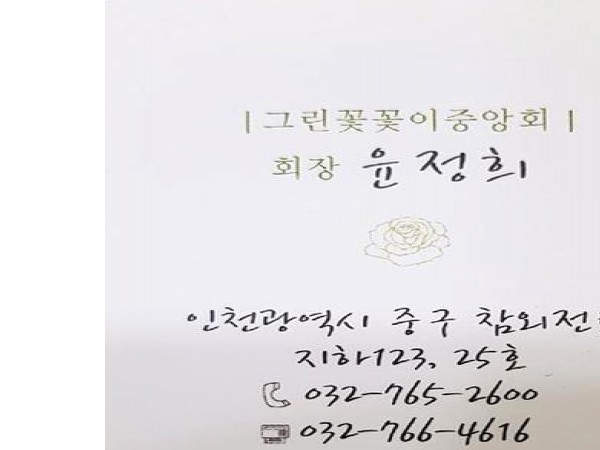 |그린꽃꽂이중앙회|
회장 윤정희
인천광역시 중구 참외전
지하123, 25호
032-765-2600
032-766-4616